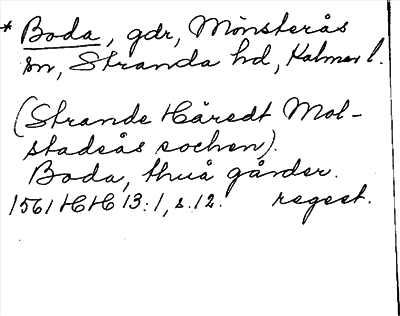 * Boda, gdr, Mönsterås
sn, Stranda hd, Kalmar l.
(Strande Häredt Mol-
stadeås sochen).
Boda, thuå gårder.
1561 HH 13:1, s. 12. regest.